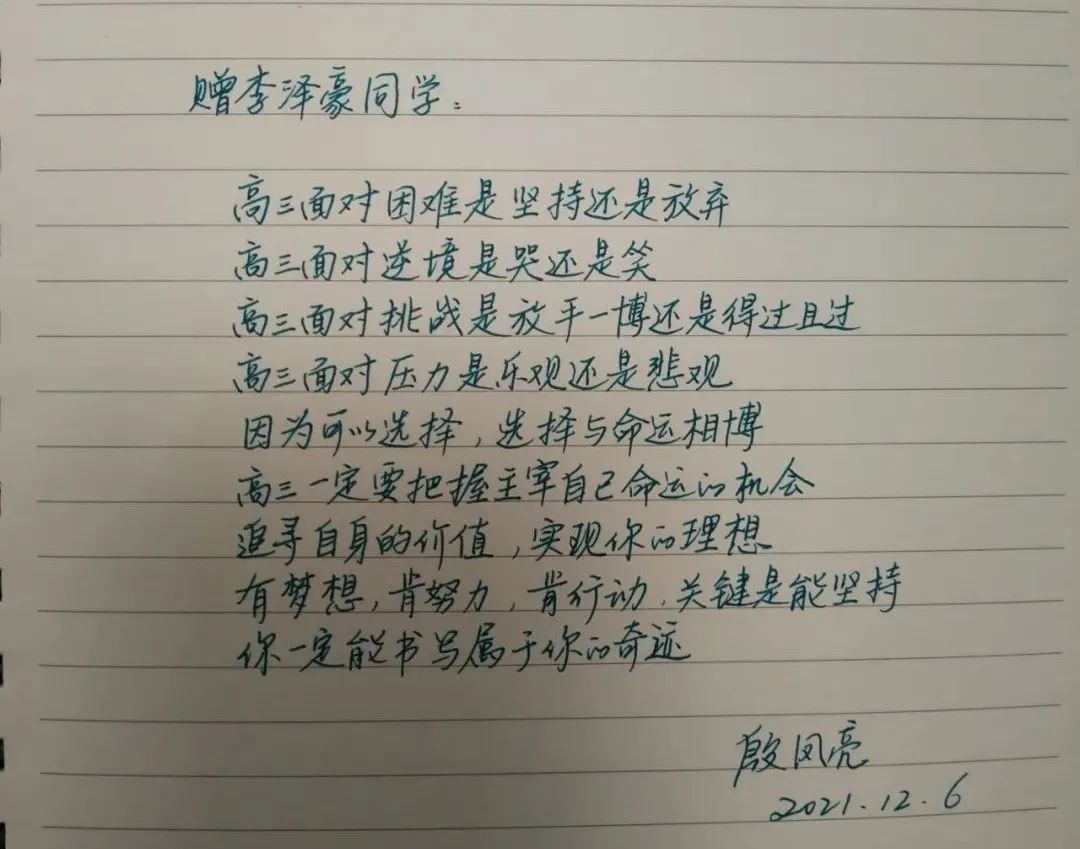 赠李泽豪同学：
高三面对困难是坚持还是放弃
高三面对逆境是哭还是笑
高三面对挑战是放手一博还是得过且过
高三面对压力是乐观还是悲观
因为可以选择，选择与命运相博
高三一定要把握主宰自己命运的机会
追寻自身的价值，实现你的理想
有梦想，肯努力，肯行动，关键是能坚持
你一定能书写属于你的奇迹
殷凤亮
2021.12.6